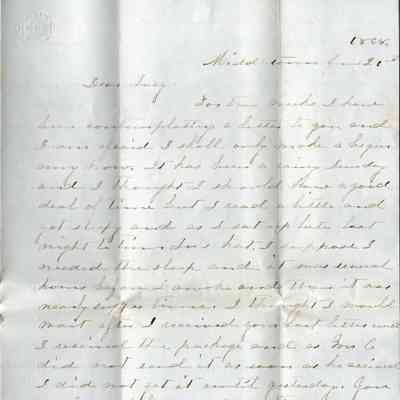 1868.
Middletown June 21st
Dear Lucy
For two weeks I have
been contemplating a letter to you and
I am afraid I shall only make a begin
ing now. It has been a rainy Sunday
and I thought I should have a good
deal of time but I read a little and
got sleepy and as I sat up late last
night to trim hat, I suppose I
needed the sleep and it was several
hours before I awoke and then it was
nearly supper time. I thought I would
wait after I received your last letter until
I received the package and as Mrs C
did not send it as soon as he received
I did not get it until yesterday. You